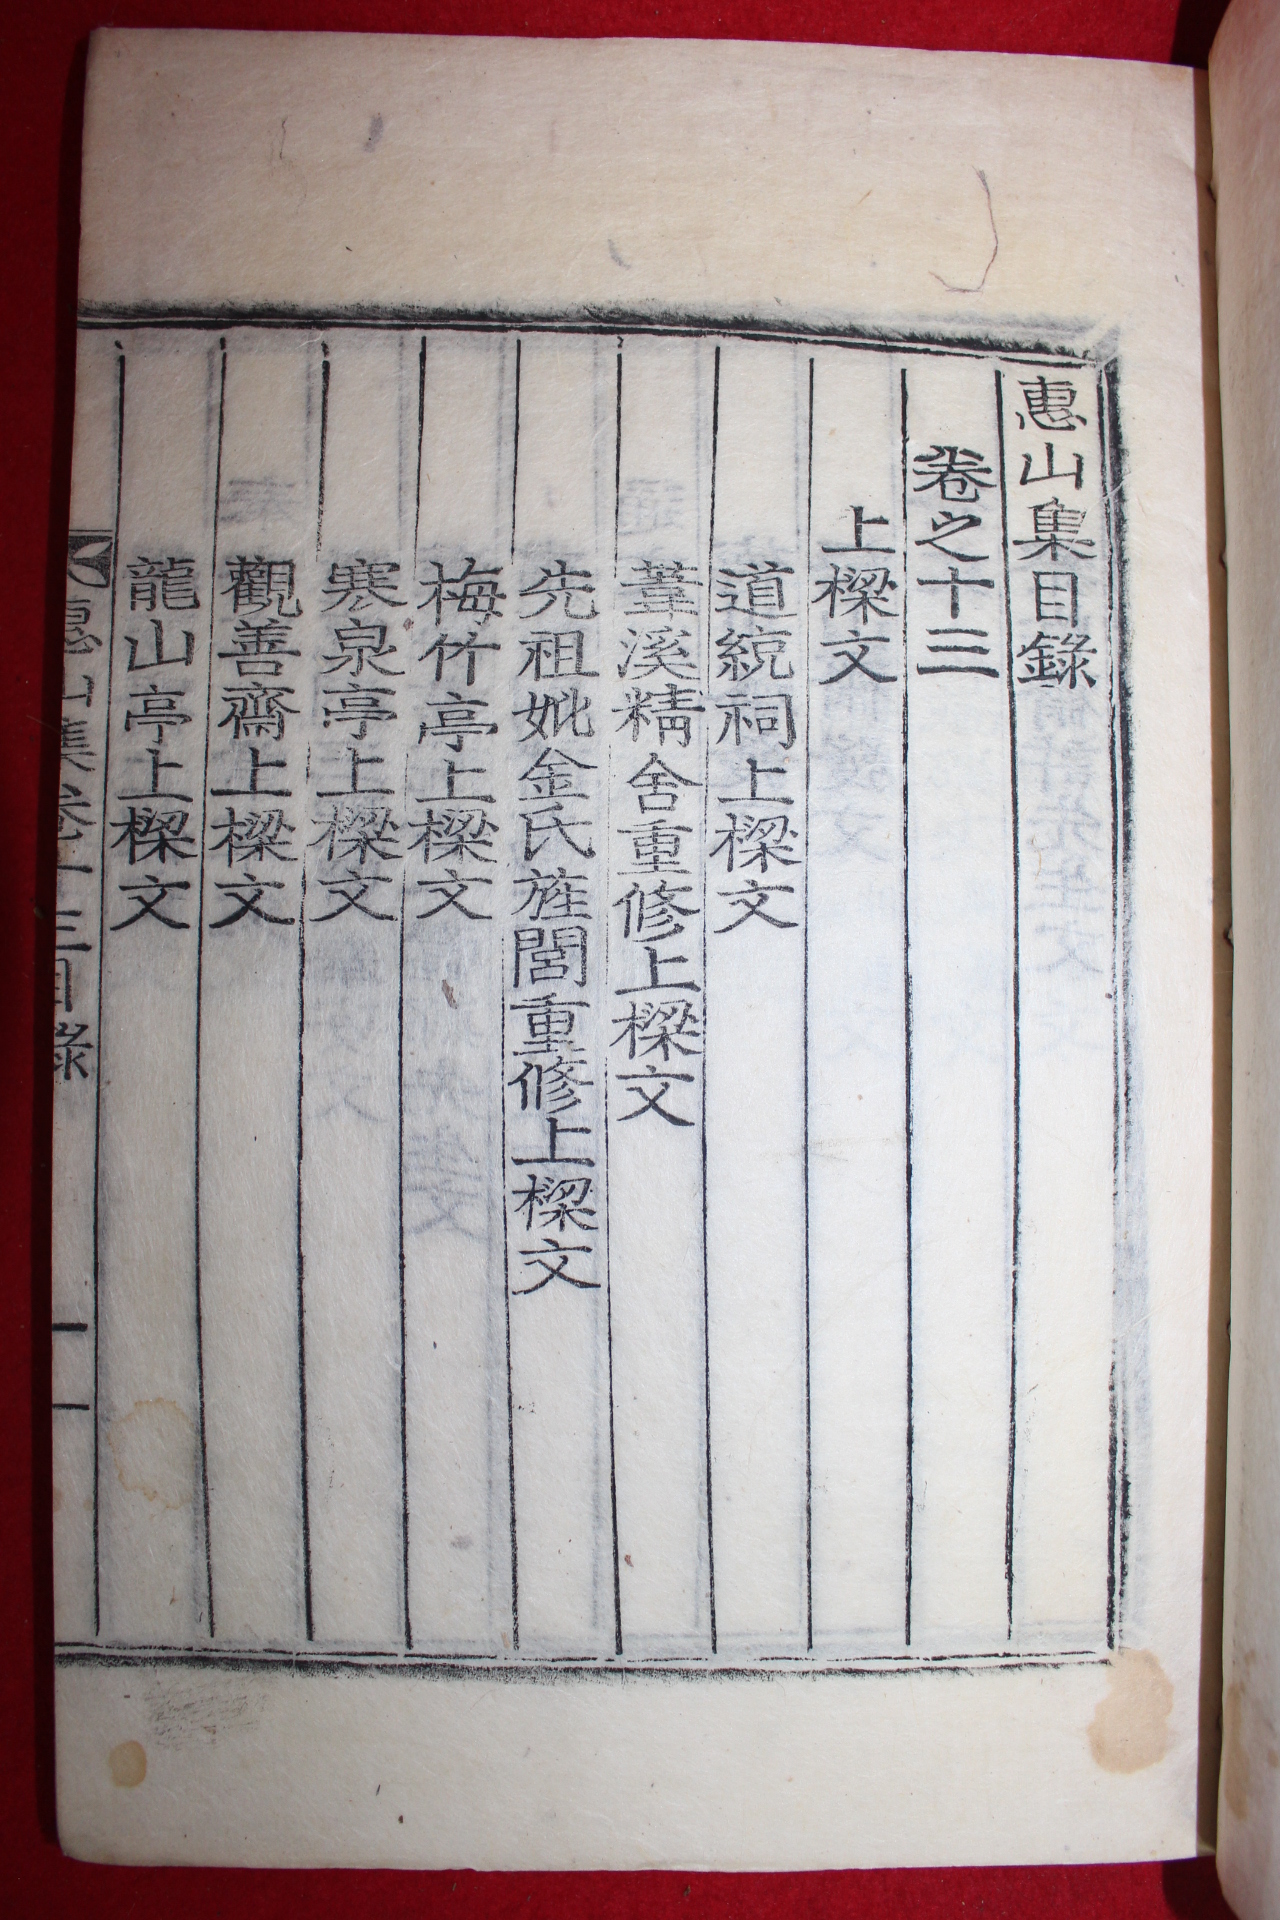 惠山集目錄
卷之十三
上樑文
道統祠上樑文
葦溪精舍重修上樑文
先祖妣金氏旌閭重修上樑文
梅竹亭上樑文
寒泉亭上樑文
觀善齋上樑文
龍山亭上樑文
惠山集卷十三目錄
一